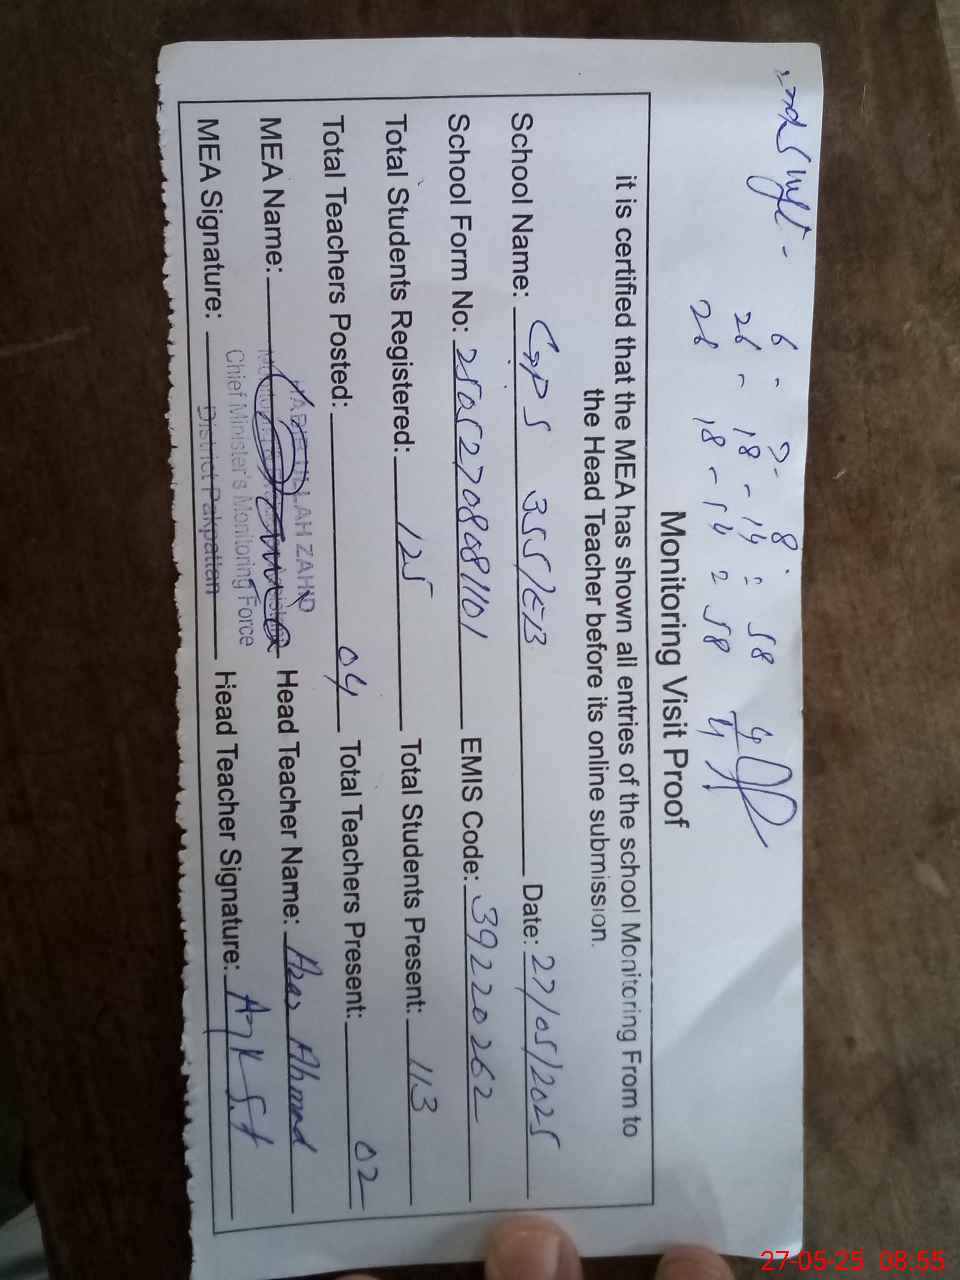 6 - 7 - 8
26 - 18 - 14 = 58
26 - 18 - 14 = 58
Monitoring Visit Proof
it is certified that the MEA has shown all entries of the school Monitoring From to
the Head Teacher before its online submission.
School Name: GPS 355/EB Date: 27/05/2025
School Form No: 25052708081101 EMIS Code: 39220262
Total Students Registered: 125 Total Students Present: 113
Total Teachers Posted: 04 Total Teachers Present: 02
MEA Name: Head Teacher Name: Azar Ahmad
ULLAH ZAHID
Chief Minister's Monitoring Force
District Pakpattan
MEA Signature: Head Teacher Signature:
27-05-25 08:55